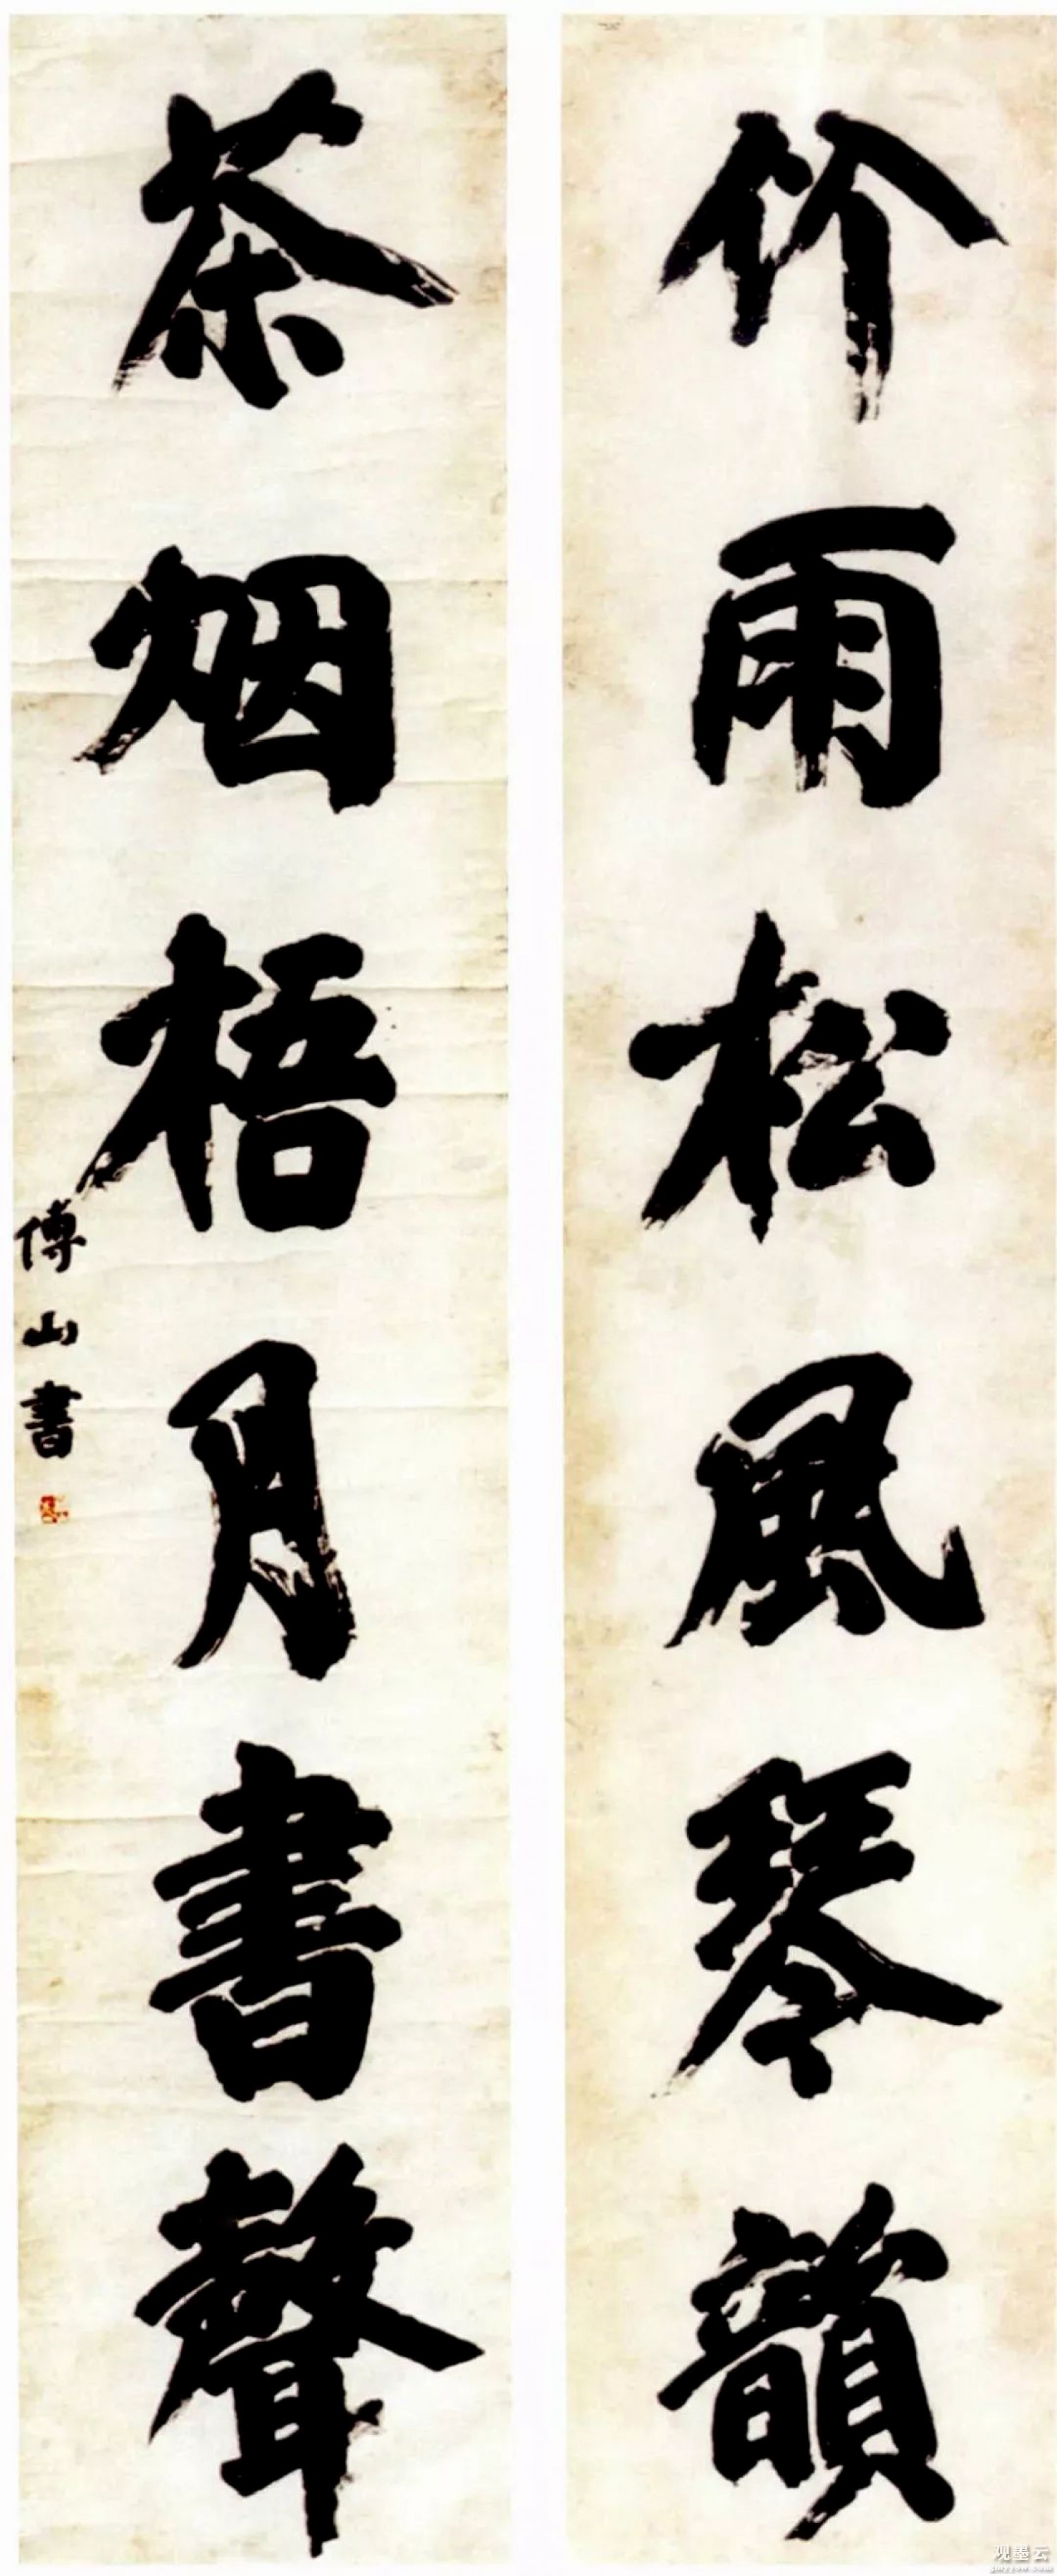 竹雨松風琴韻
茶烟梧月書聲
傅山書
观墨云